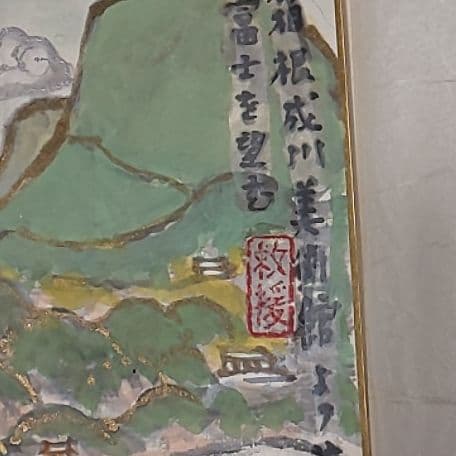 箱根成川美術館より
富士を望む